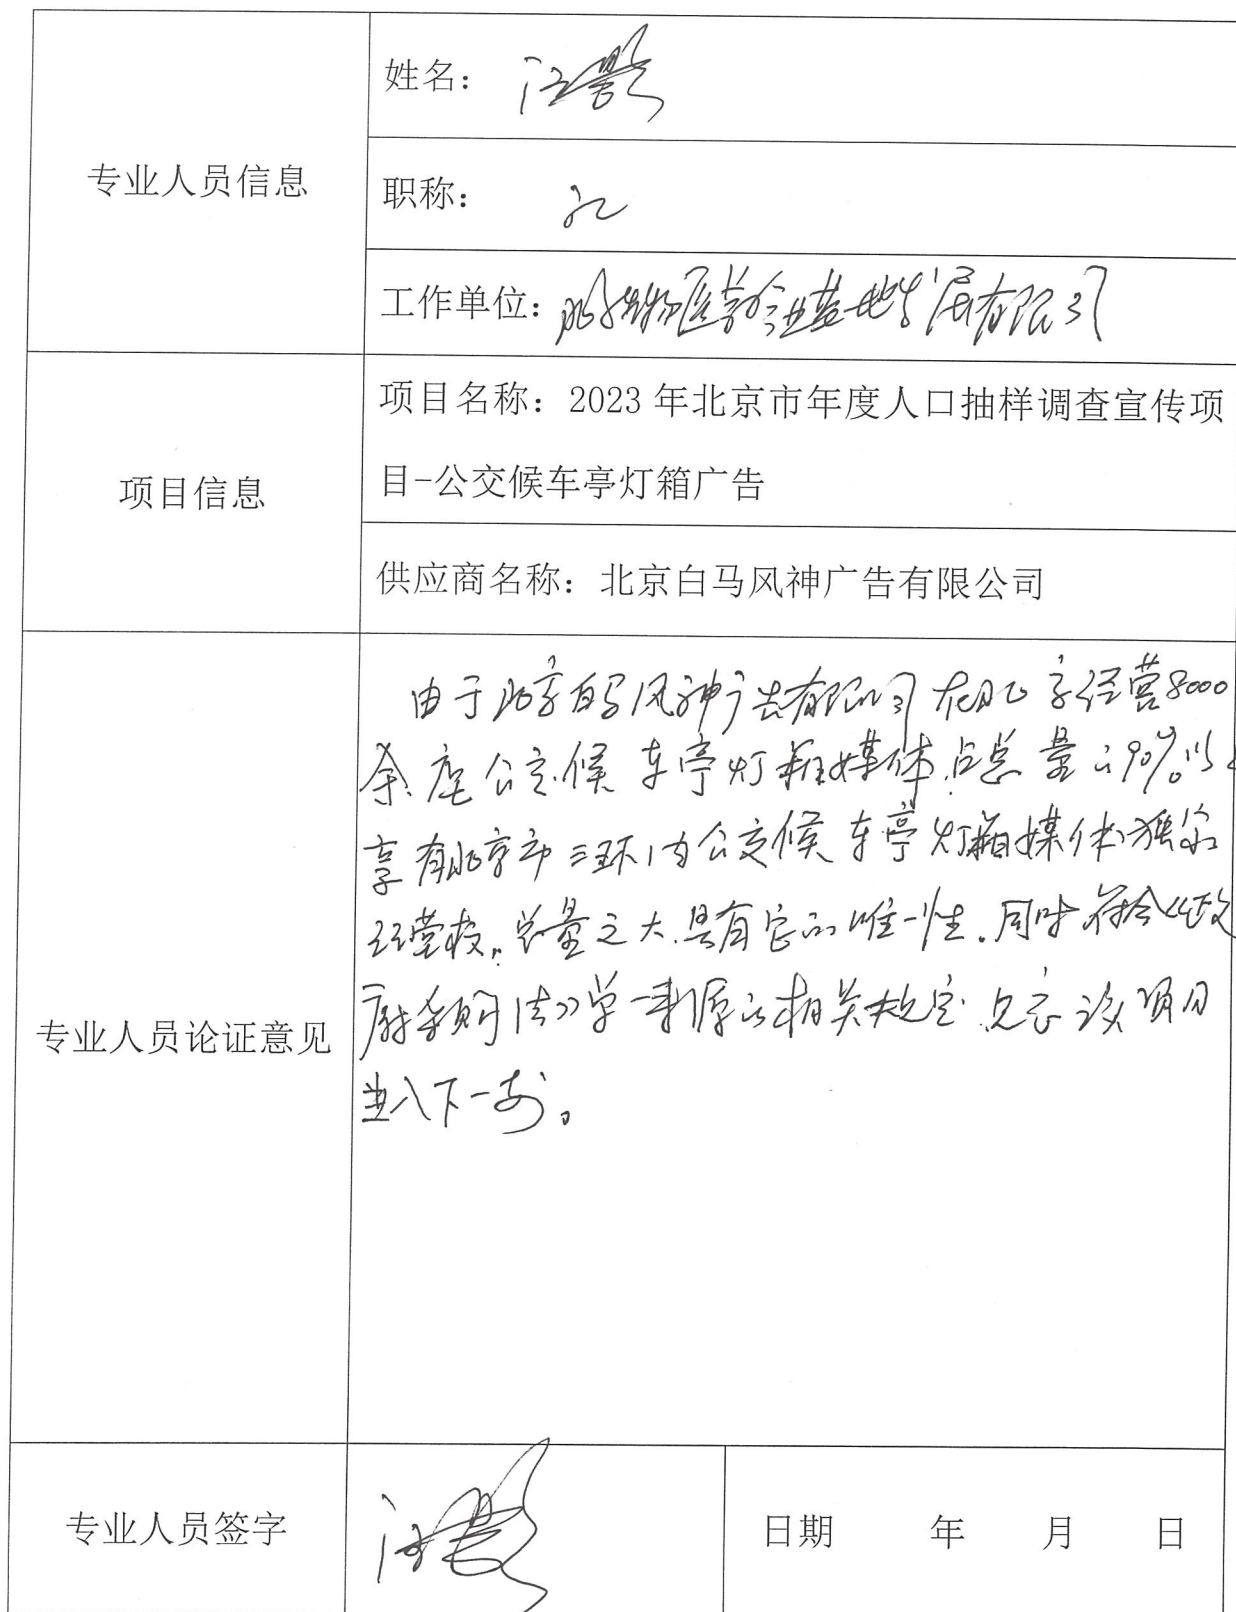 专业人员信息
姓名：汪
职称：
工作单位：生物医学产业基地发展有限公司
项目信息
项目名称：2023年北京市年度人口抽样调查宣传项
目-公交候车亭灯箱广告
供应商名称：北京白马风神广告有限公司
专业人员论证意见
由于北京白马风神广告有限公司在北京经营8000
余座公交候车亭灯箱媒体占总量的90%以
享有北京市三环内公交候车亭灯箱媒体独家
经营权。总量之大.具有它的唯一性.同时符合《政
府采购法》单一来源的相关规定.该项目
进入下一步。
专业人员签字
日期 年 月 日